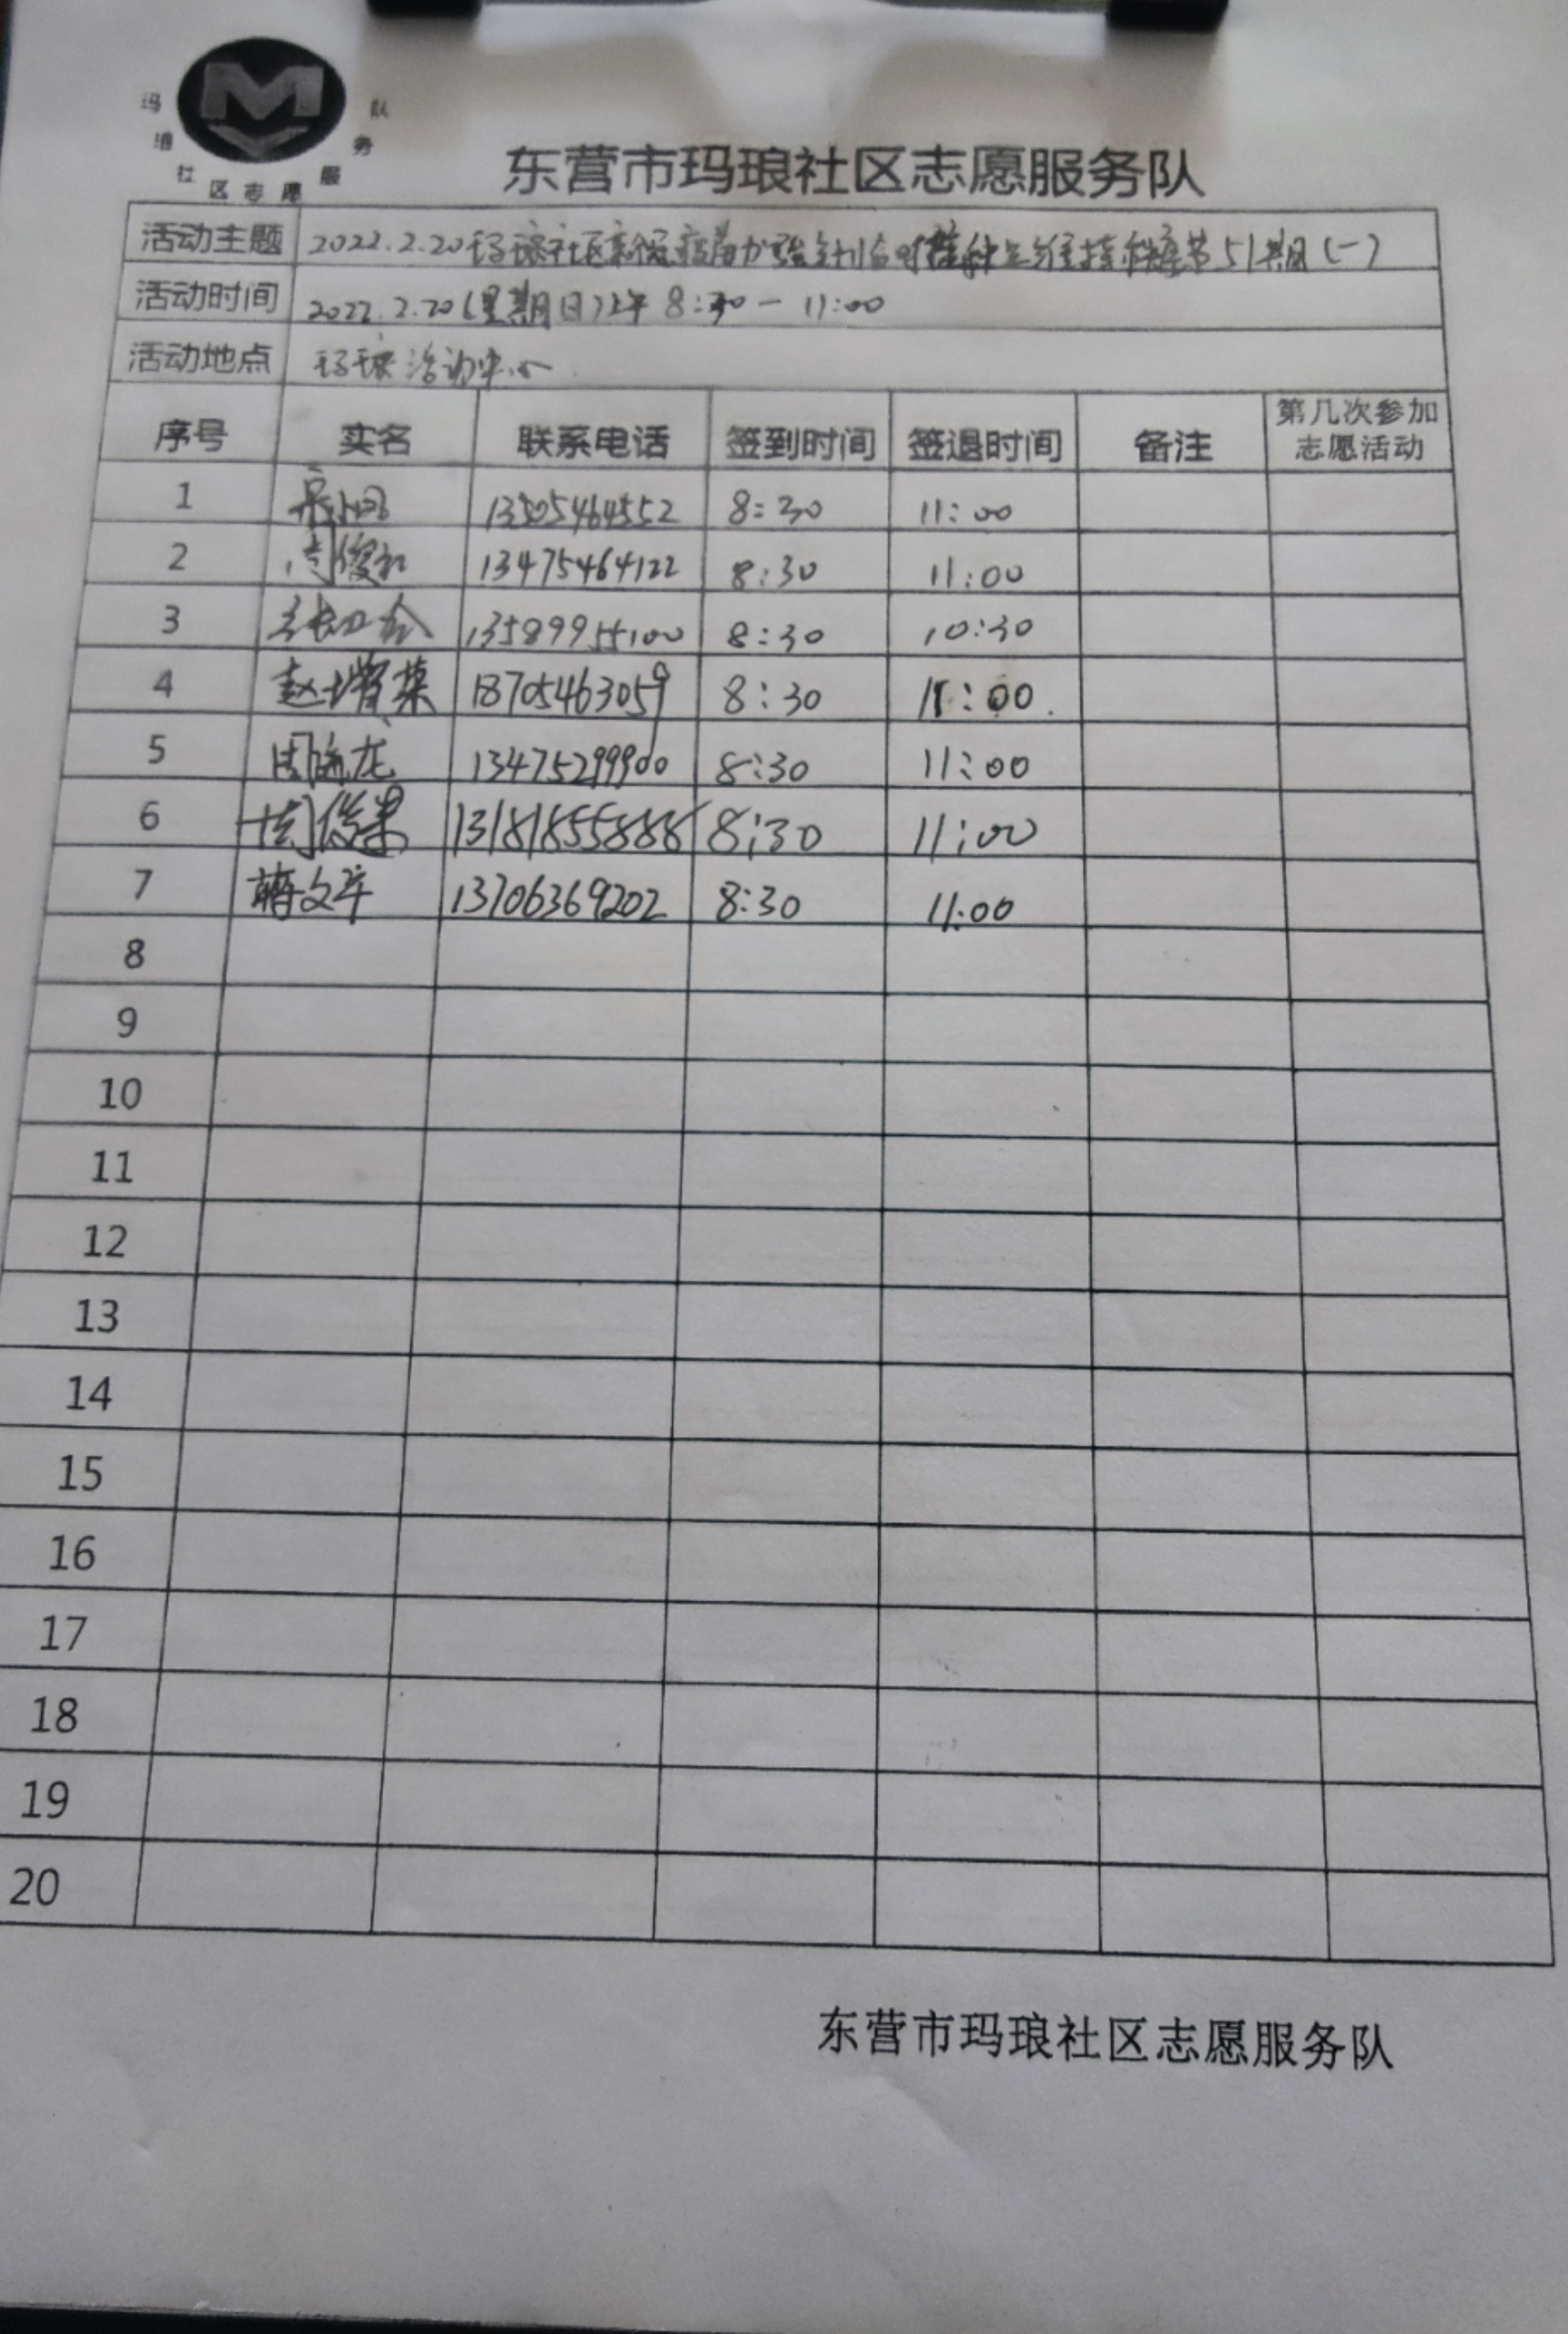 玛琅社区志愿服务队
东营市玛琅社区志愿服务队
活动主题 2022.2.20玛琅社区新冠疫苗加强针 维持秩序第51期(一)
活动时间 2022.2.20(星期日)上午 8:30-11:00
活动地点 玛琅活动中心
序号 实名 联系电话 签到时间 签退时间 备注 第几次参加志愿活动
1 13505464552 8:30 11:00
2 周俊 13475464122 8:30 11:00
3 13589955100 8:30 10:30
4 赵 菜 18705463059 8:30 11:00
5 周 龙 13475299900 8:30 11:00
6 俊果 13181855888 8:30 11:00
7 蒋文 13706369202 8:30 11:00
8
9
10
11
12
13
14
15
16
17
18
19
20
东营市玛琅社区志愿服务队